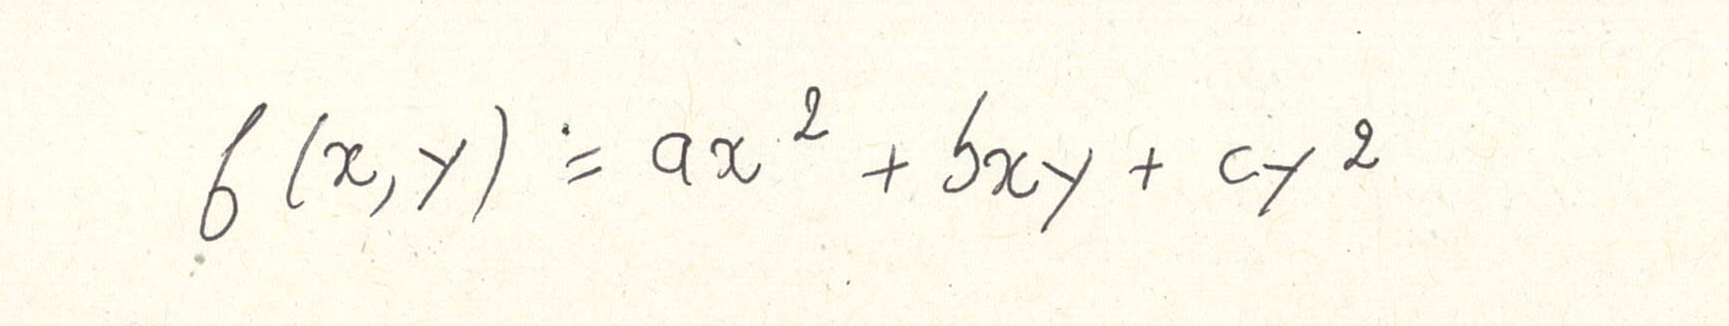 f(x,y) = ax² + bxy + cy²